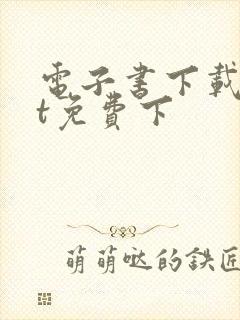 電子書下載
t免費下
萌萌哒的鉄匠